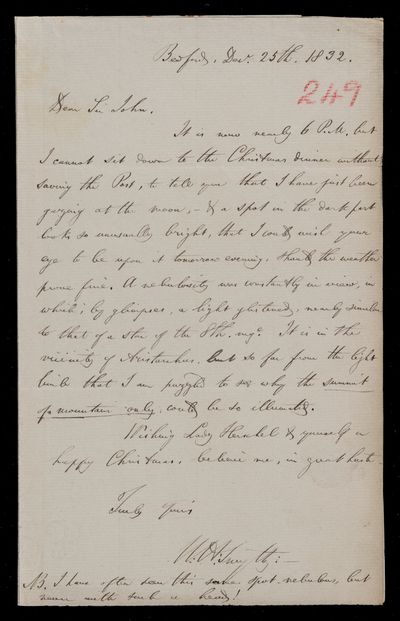 Bedford, Decr. 25th. 1832.
249
Dear Sir John.
It is now nearly 6 P.M. but
I cannot sit down to the Christmas dinner without
saving the Post, to tell you that I have just been
gazing at the moon, - & a spot in the dark part
looks so unusually bright, that I could wish your
eye to be upon it tomorrow evening, should the weather
prove fine. A nebulosity was constantly in view, in
which, by glimpses, a light glistened, nearly similar
to that of a star of the 8th. mg. It is in the
vicinity of Aristarchus, but so far from the light
limb that I am puzzled to see why the summit
of a mountain only, could be so illuminated.
Wishing Lady Herschel & yourself a
happy Christmas, believe me, in great haste
Truly yours
W. H. Smyth
NB. I have often seen this same spot nebulous, but
never with such a head!